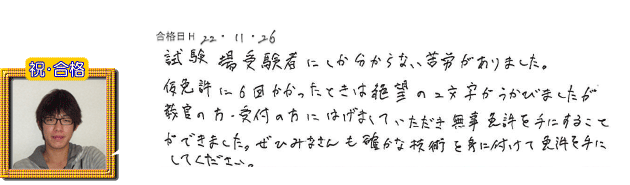 祝・合格
合格日H 22・11・26
試験場受験者にしか分からない苦労がありました。
仮免許に6回かかったときは絶望の2文字がうかびましたが
教官の方・受付の方にはげましていただき無事免許を手にすること
ができました。ぜひみなさんも確かな技術を身に付けて免許を手に
してください。